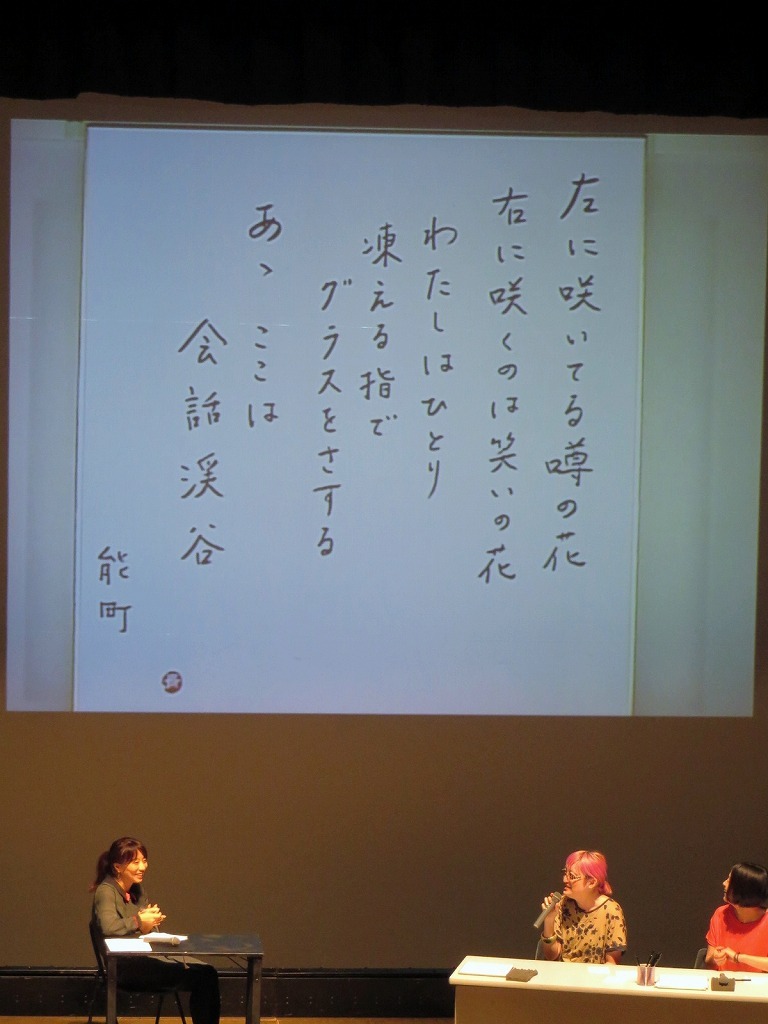 左に咲いてる噂の花
右に咲くのは笑いの花
わたしはひとり
凍える指で
グラスをさする
あゝ ここは
会話渓谷
能町